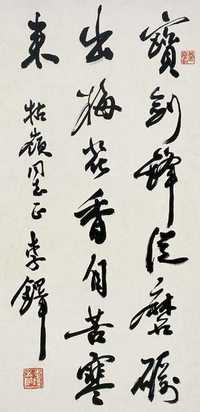 寶劍鋒從磨礪
出梅花香自苦寒
來
牯嶺同志正 李鐸